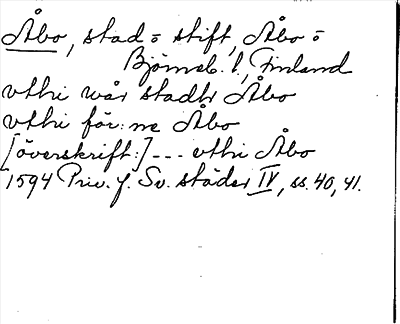 Åbo, stad = stift, Åbo =
Björneb. l., Finland
vthi wår stadh Åbo
vthi för: ne Åbo
[överskrift:] --- vthi Åbo
1594 Priv. f. Sv. städer IV, ss. 40, 41.